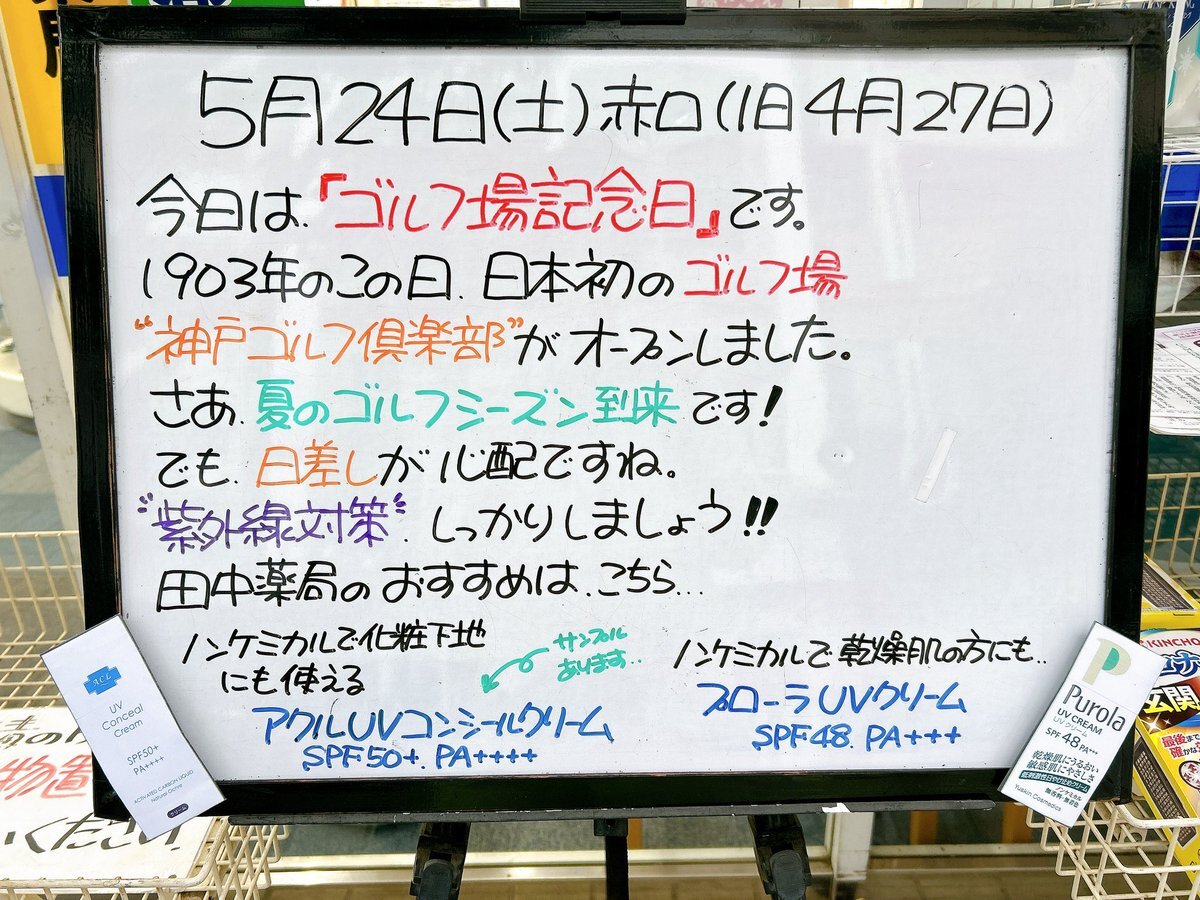 5月24日(土)赤口(旧4月27日)
今日は、『ゴルフ場記念日』です。
1903年のこの日、日本初のゴルフ場
“神戸ゴルフ倶楽部”がオープンしました。
さあ、夏のゴルフシーズン到来です!
でも、日差しが心配ですね。
“紫外線対策”、しっかりしましょう!!
田中薬局のおすすめは、こちら...
ノンケミカルで化粧下地
にも使える
サンプル
あります..
アクルUVコンシールクリーム
SPF50+. PA++++
ノンケミカルで乾燥肌の方にも..
プローラUVクリーム
SPF48. PA+++
ACL
UV
Conceal
Cream
SPF50+
PA++++
ACTIVATED CARBON LIQUID
Natural Ochre
Purola
UV CREAM
UVクリーム
SPF 48 PA+++
乾燥肌にうるおい
敏感肌にやさしさ
低刺激性日やけ止めクリーム
ノンケミカル
無香料・無着色
Yuskin Cosmetics
KINCHO
玄関
最後まで
確かな
物置